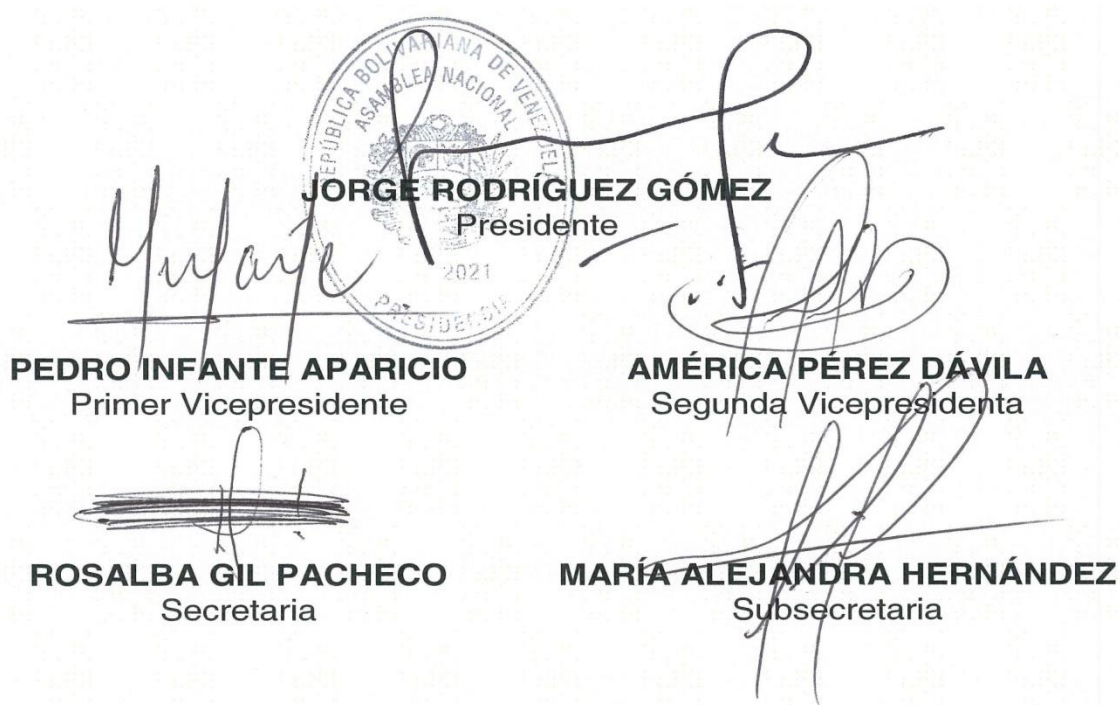 REPÚBLICA BOLIVARIANA DE VENEZUELA
ASAMBLEA NACIONAL
2021
PRESIDENCIA
JORGE RODRÍGUEZ GÓMEZ
Presidente
PEDRO INFANTE APARICIO
Primer Vicepresidente
AMÉRICA PÉREZ DÁVILA
Segunda Vicepresidenta
ROSALBA GIL PACHECO
Secretaria
MARÍA ALEJANDRA HERNÁNDEZ
Subsecretaria